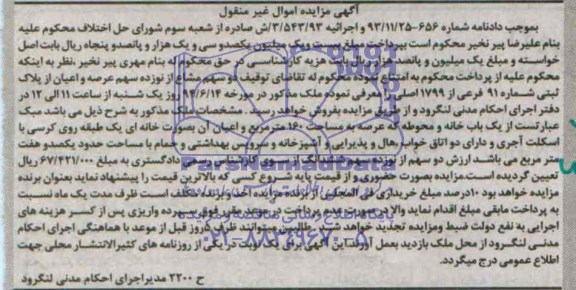 آگهی مزایده اموال غیر منقول
بموجب دادنامه شماره ۶۵۶-۹۳/۱۱/۲۵ و اجرائیه ۳/۵۴۳/۹۳ش صادره از شعبه سوم شورای حل اختلاف محکوم علیه
بنام علیرضا پیر نخیر محکوم است بپرداخت مبلغ بیست ویک میلیون یکصدو سی و یک هزار و پانصدو پنجاه ریال بابت اصل
خواسته و مبلغ یک میلیون و پانصد هزار ریال بابت هزینه کارشناسی در حق محکوم له بنام مهری پیر نخیر .نظر به اینکه
محکوم علیه از پرداخت محکوم به امتناع نموده محکوم له تقاضای توقیف دو سهم مشاع از نوزده سهم عرصه و اعیان از پلاک
ثبتی شماره ۹۱ فرعی از ۱۷۹۹ اصلی را معرفی نموده ملک مذکور در مورخه ۹۴/۶/۱۴ روز یک شنبه از ساعت ۱۱ الی ۱۲ در
دفتر اجرای احکام مدنی لنگرود و از طریق مزایده بفروش خواهد رسید . مشخصات ملک مذکور به شرح ذیل می باشد
عبارتست از یک باب خانه و محوطه که عرصه به مساحت ۱۶۰ مترمربع و اعیان آن بصورت خانه ای یک طبقه روی کرسی با
اسکلت آجری و دارای دو اتاق خواب رهال و پذیرایی و آشپزخانه و سرویس بهداشتی و حمام با مساحت حدود یکصدو هفت
متر مربع می باشـد ارزش دو سهم از نوزده سهم ششدانگ از سوی کارشناس رسمی دادگستری به مبلغ ۶۷/۴۲۱/۰۰۰ ریال
تعیین گردیده است.مزایده بصورت حضوری و از قیمت پایه شروع کسی که بالاترین قیمت را پیشنهاد نماید بعنوان برنده
مزایده خواهد بود ۱۰درصد مبلغ خریداری فی المجلس از برنده مزایده اخذ و برنده مکلف است ظرف مدت یک ماه نسبت
به پرداخت مابقی مبلغ اقدام نماید والا در صورت عدم پرداخت در موعد مقرر فوق سپرده واریزی پس از کسر هزینه های
اجرایی به نفع دولت ضبط ومزایده تجدید خواهد شد . طالبین میتوانند ظرف ۵روز قبل از موعد با هماهنگی اجرای احکام
مدنـی لنگـرود از محل ملک بازدید بعمل آورند این آگهی برای یک نوبت در یکی از روزنامه های کثیرالانتشار محلی جهت
اطلاع عمومی درج میگردد.
ح ۲۲۰۰ مدیراجرای احکام مدنی لنگرود
ParsNamadData
۰۲۱-۸۸۳۴۹۶۷۰-۵